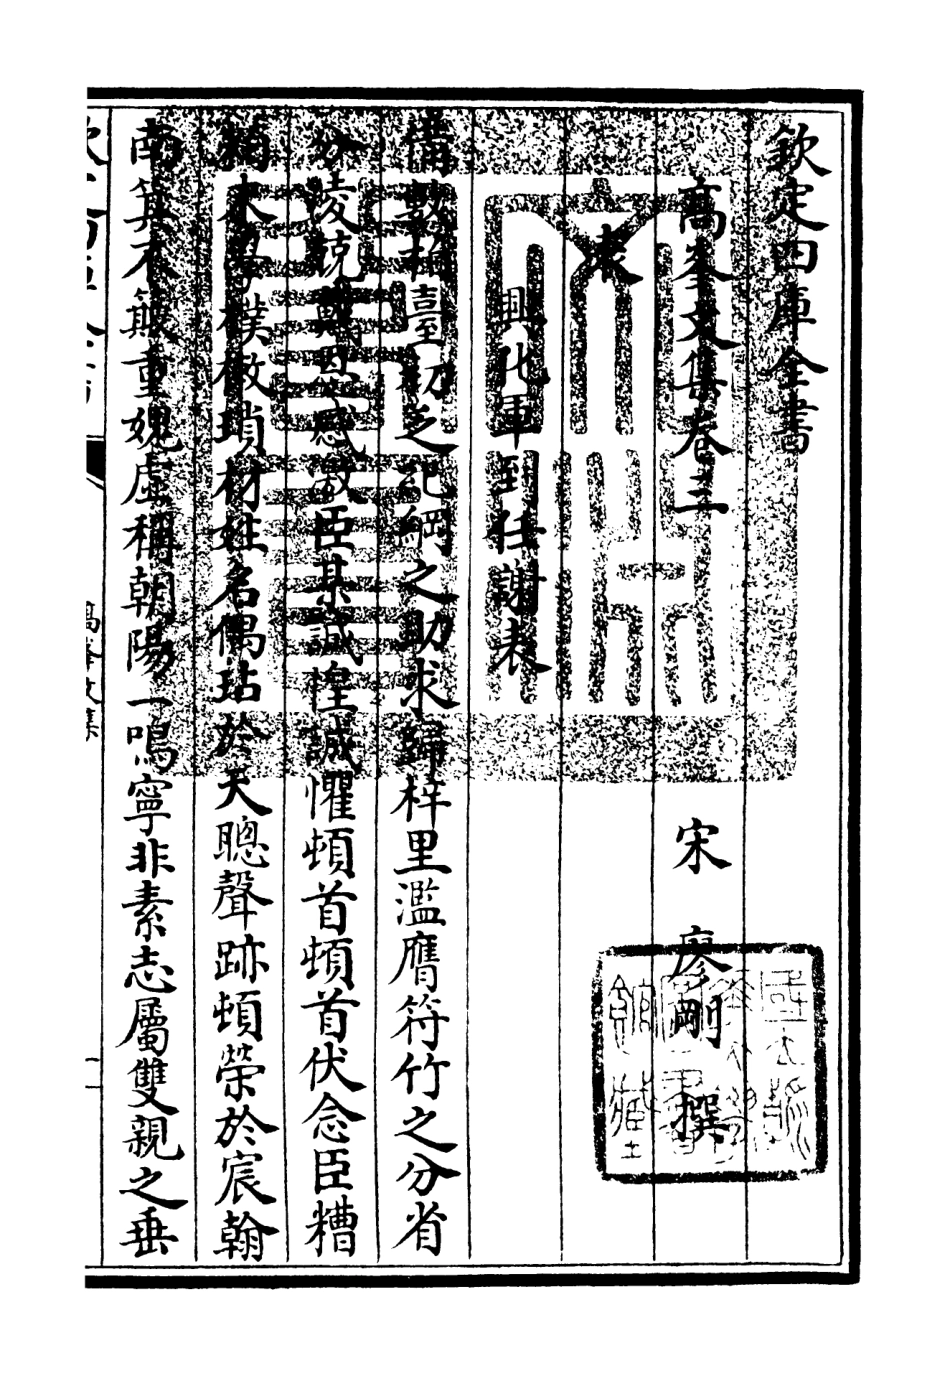 欽定四庫全書
高峯文集卷三
宋 廖剛 撰
表
興化軍到任謝表
備數柏臺初乏紀綱之助求歸梓里濫膺符竹之分省
分凌兢戴恩感激臣某誠惶誠懼頓首頓首伏念臣糟
粕末學樸樕瑣材姓名偶玷於天聰聲跡頓榮於宸翰
南箕不簸重媿虛稱朝陽一鳴寧非素志屬雙親之垂
高峯文集